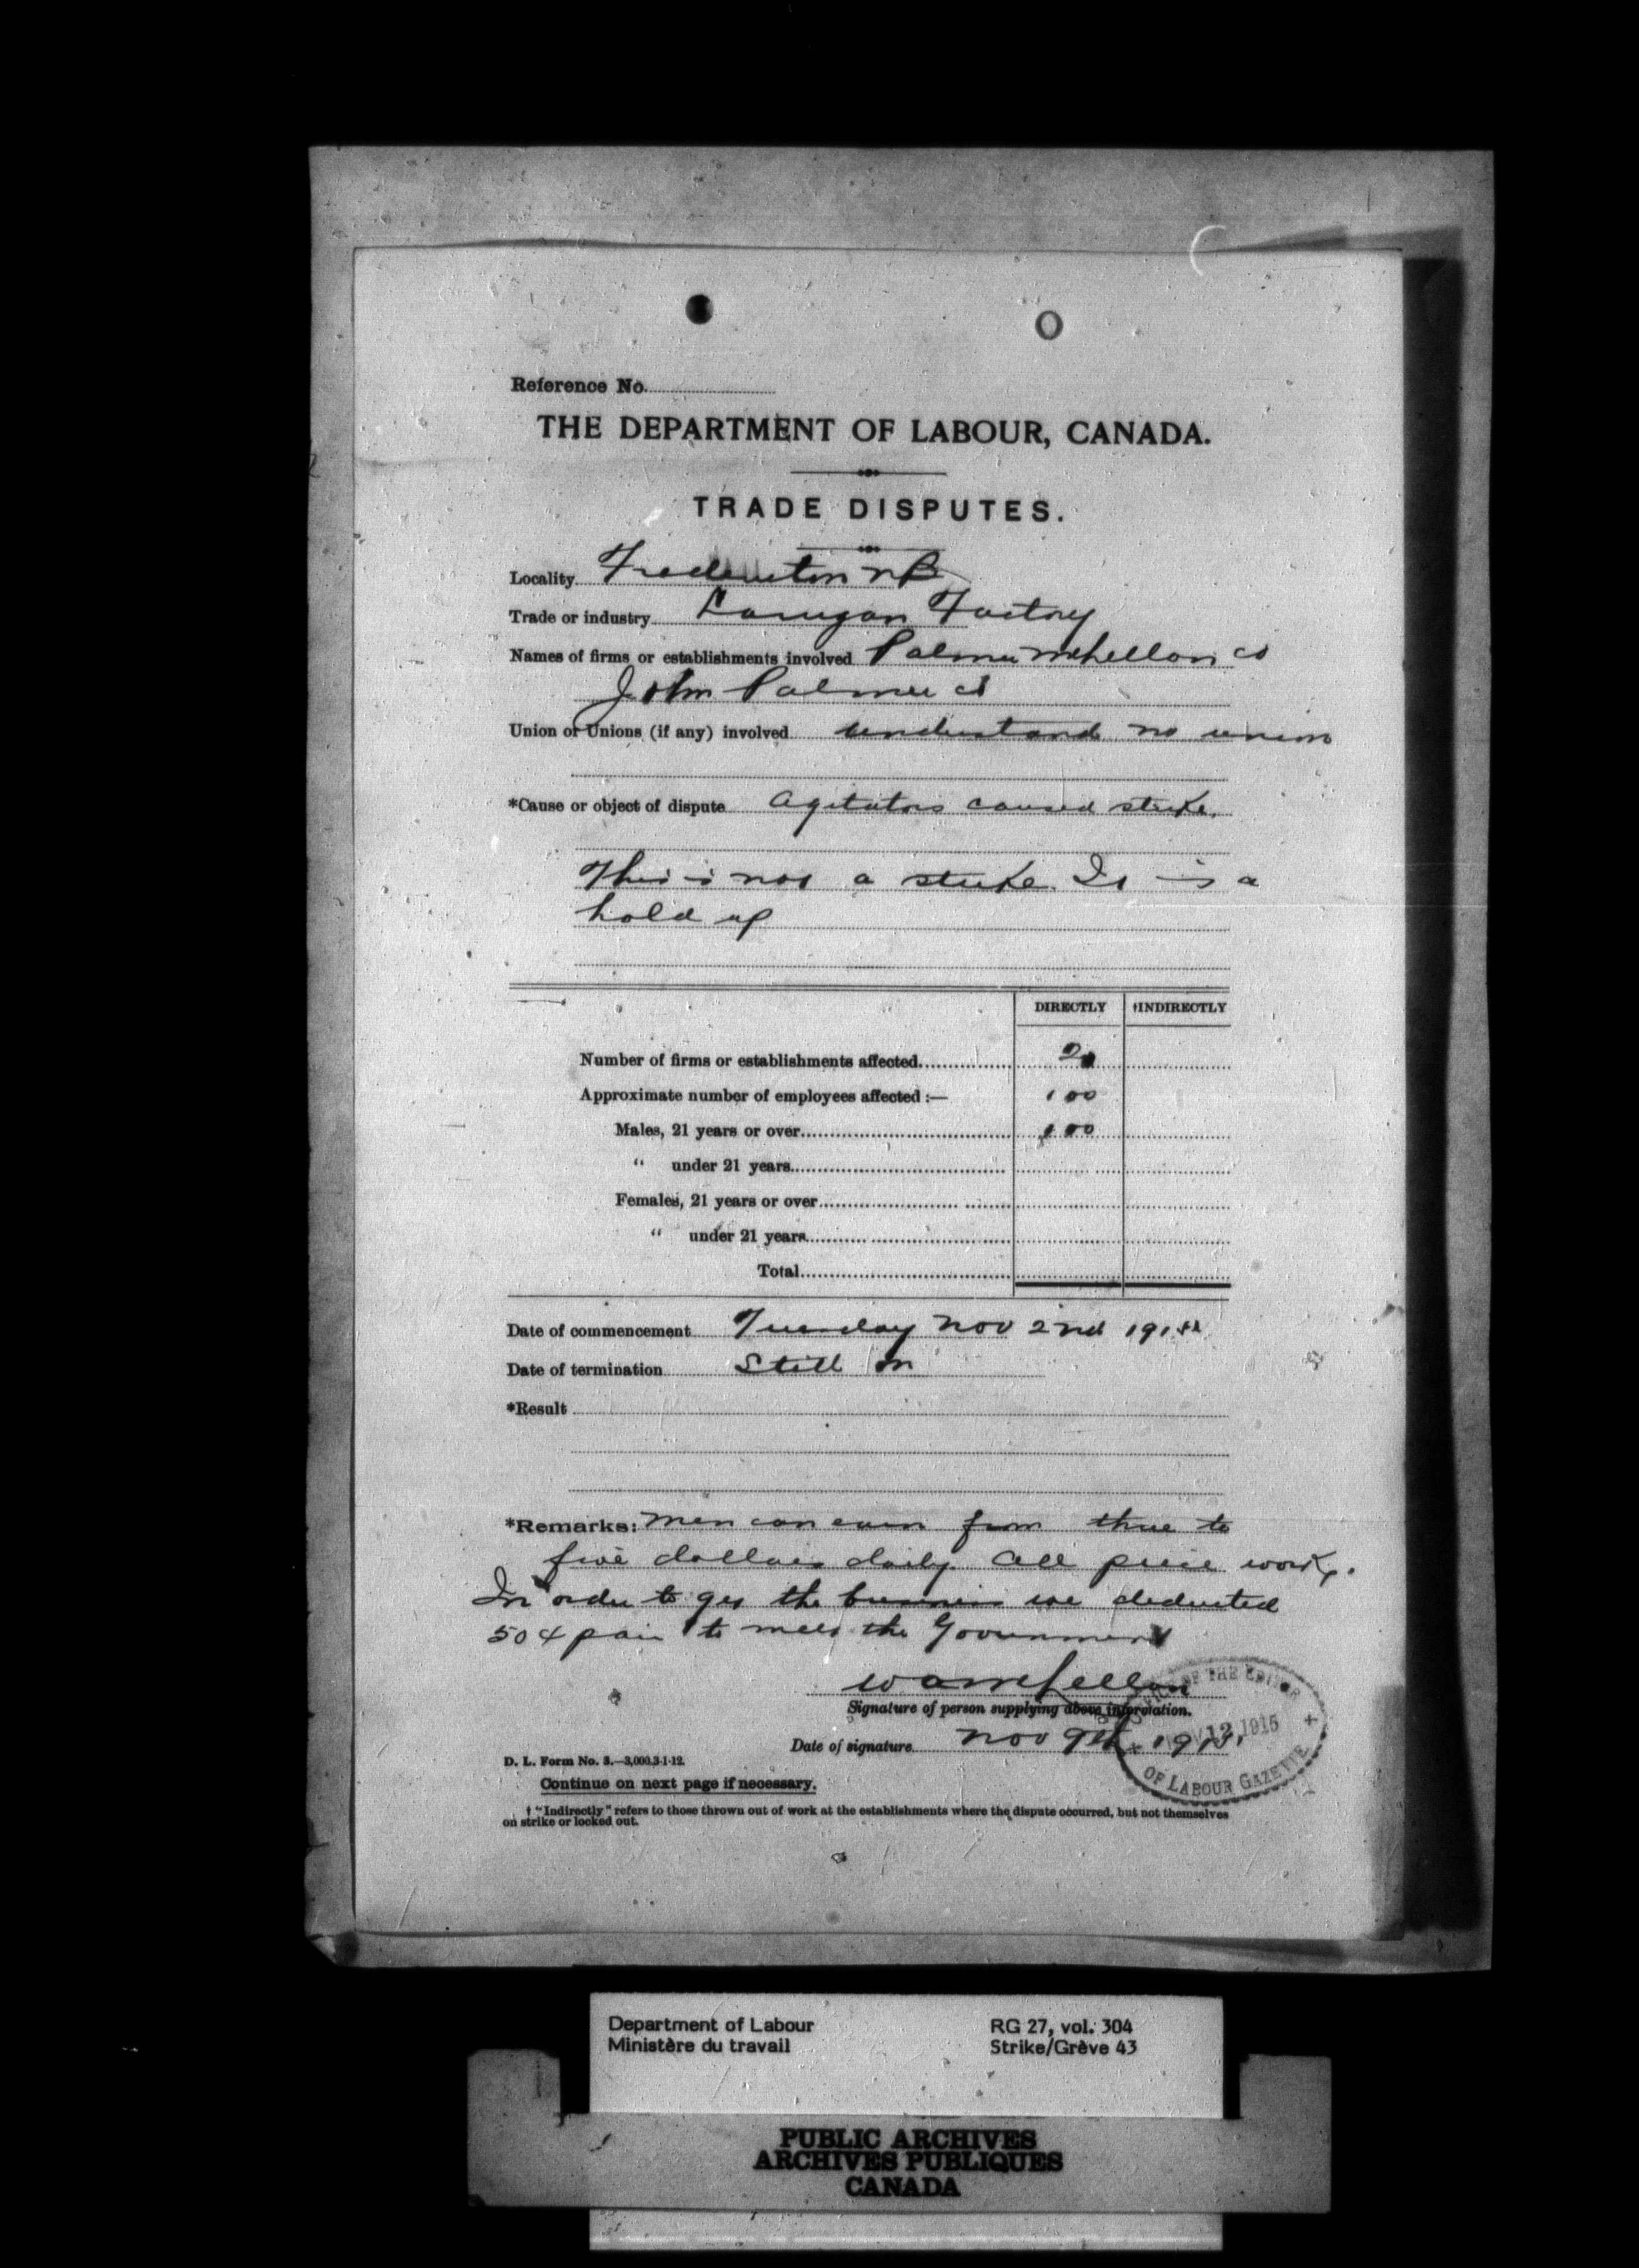 Reference No.
THE DEPARTMENT OF LABOUR, CANADA.
TRADE DISPUTES.
Locality Fredericton NB
Trade or industry Larrigan Factory
Names of firms or establishments involved Palmer McLellan Co
John Palmer Co
Union or Unions (if any) involved understand no union
*Cause or object of dispute Agitators caused strike.
This is not a strike. It is a
hold up
DIRECTLY †INDIRECTLY
Number of firms or establishments affected 2
Approximate number of employees affected :— 100
Males, 21 years or over 100
" under 21 years
Females, 21 years or over
" under 21 years
Total
Date of commencement Tuesday Nov 2nd 1915
Date of termination Still on
*Result
*Remarks: Men can earn from three to
five dollars daily. All piece work.
In order to get the business we deducted
50¢ pair to meet the Government
Signature of person supplying above information.
Date of signature Nov 9th 1915.
OFFICE OF THE EDITOR
NOV 12 1915
OF LABOUR GAZETTE
D. L. Form No. 3.—3,000.3-1-12.
Continue on next page if necessary.
† "Indirectly" refers to those thrown out of work at the establishments where the dispute occurred, but not themselves
on strike or locked out.
Department of Labour RG 27, vol. 304
Ministère du travail Strike/Grève 43
PUBLIC ARCHIVES
ARCHIVES PUBLIQUES
CANADA